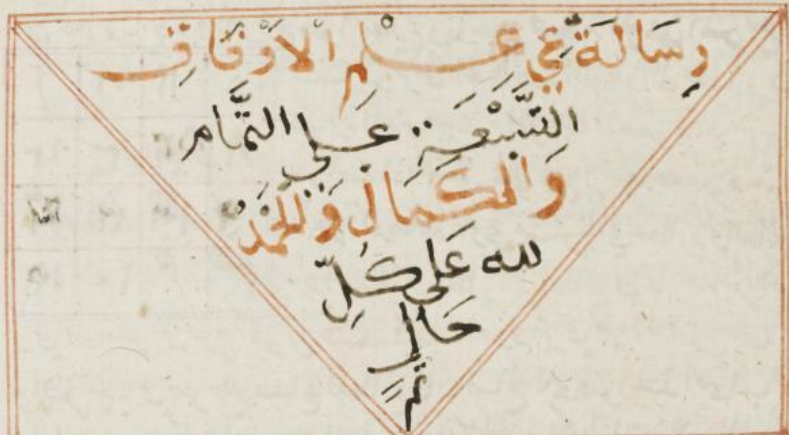 رِسَالَةٌ فِي عِلْمِ الْأَوْفَاقِ
التِّسْعَةِ عَلَى التَّمَامِ
وَالْكَمَالِ وَالْحَمْدُ
لله عَلَى كُلِّ
حَالٍ
تم